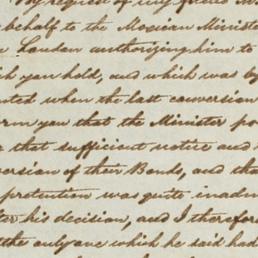 By request of my friend M
behalf to the Mexican Ministe
London authorizing him to
ch you hold, and which was by
nted when the last conversion
orm you that the Minister po
that sufficient notice and
version of their Bonds, and tha
protention was quite inadm
ter his decision, and I therefore
the only one which he said had